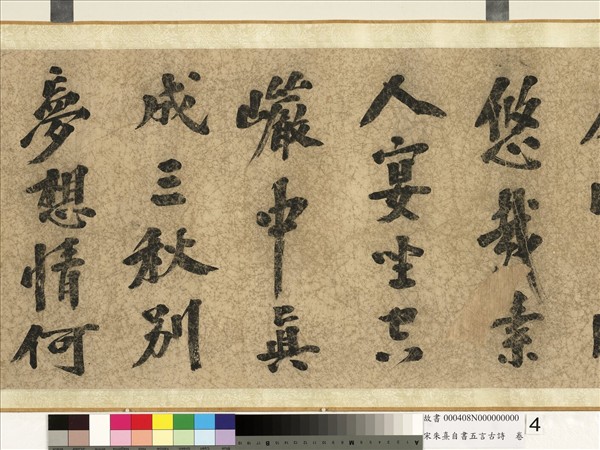 悠哉素
人宴坐空
巖中真
成三秋別
夢想情何
故書 000408N000000000
宋朱熹自書五言古詩 卷
4